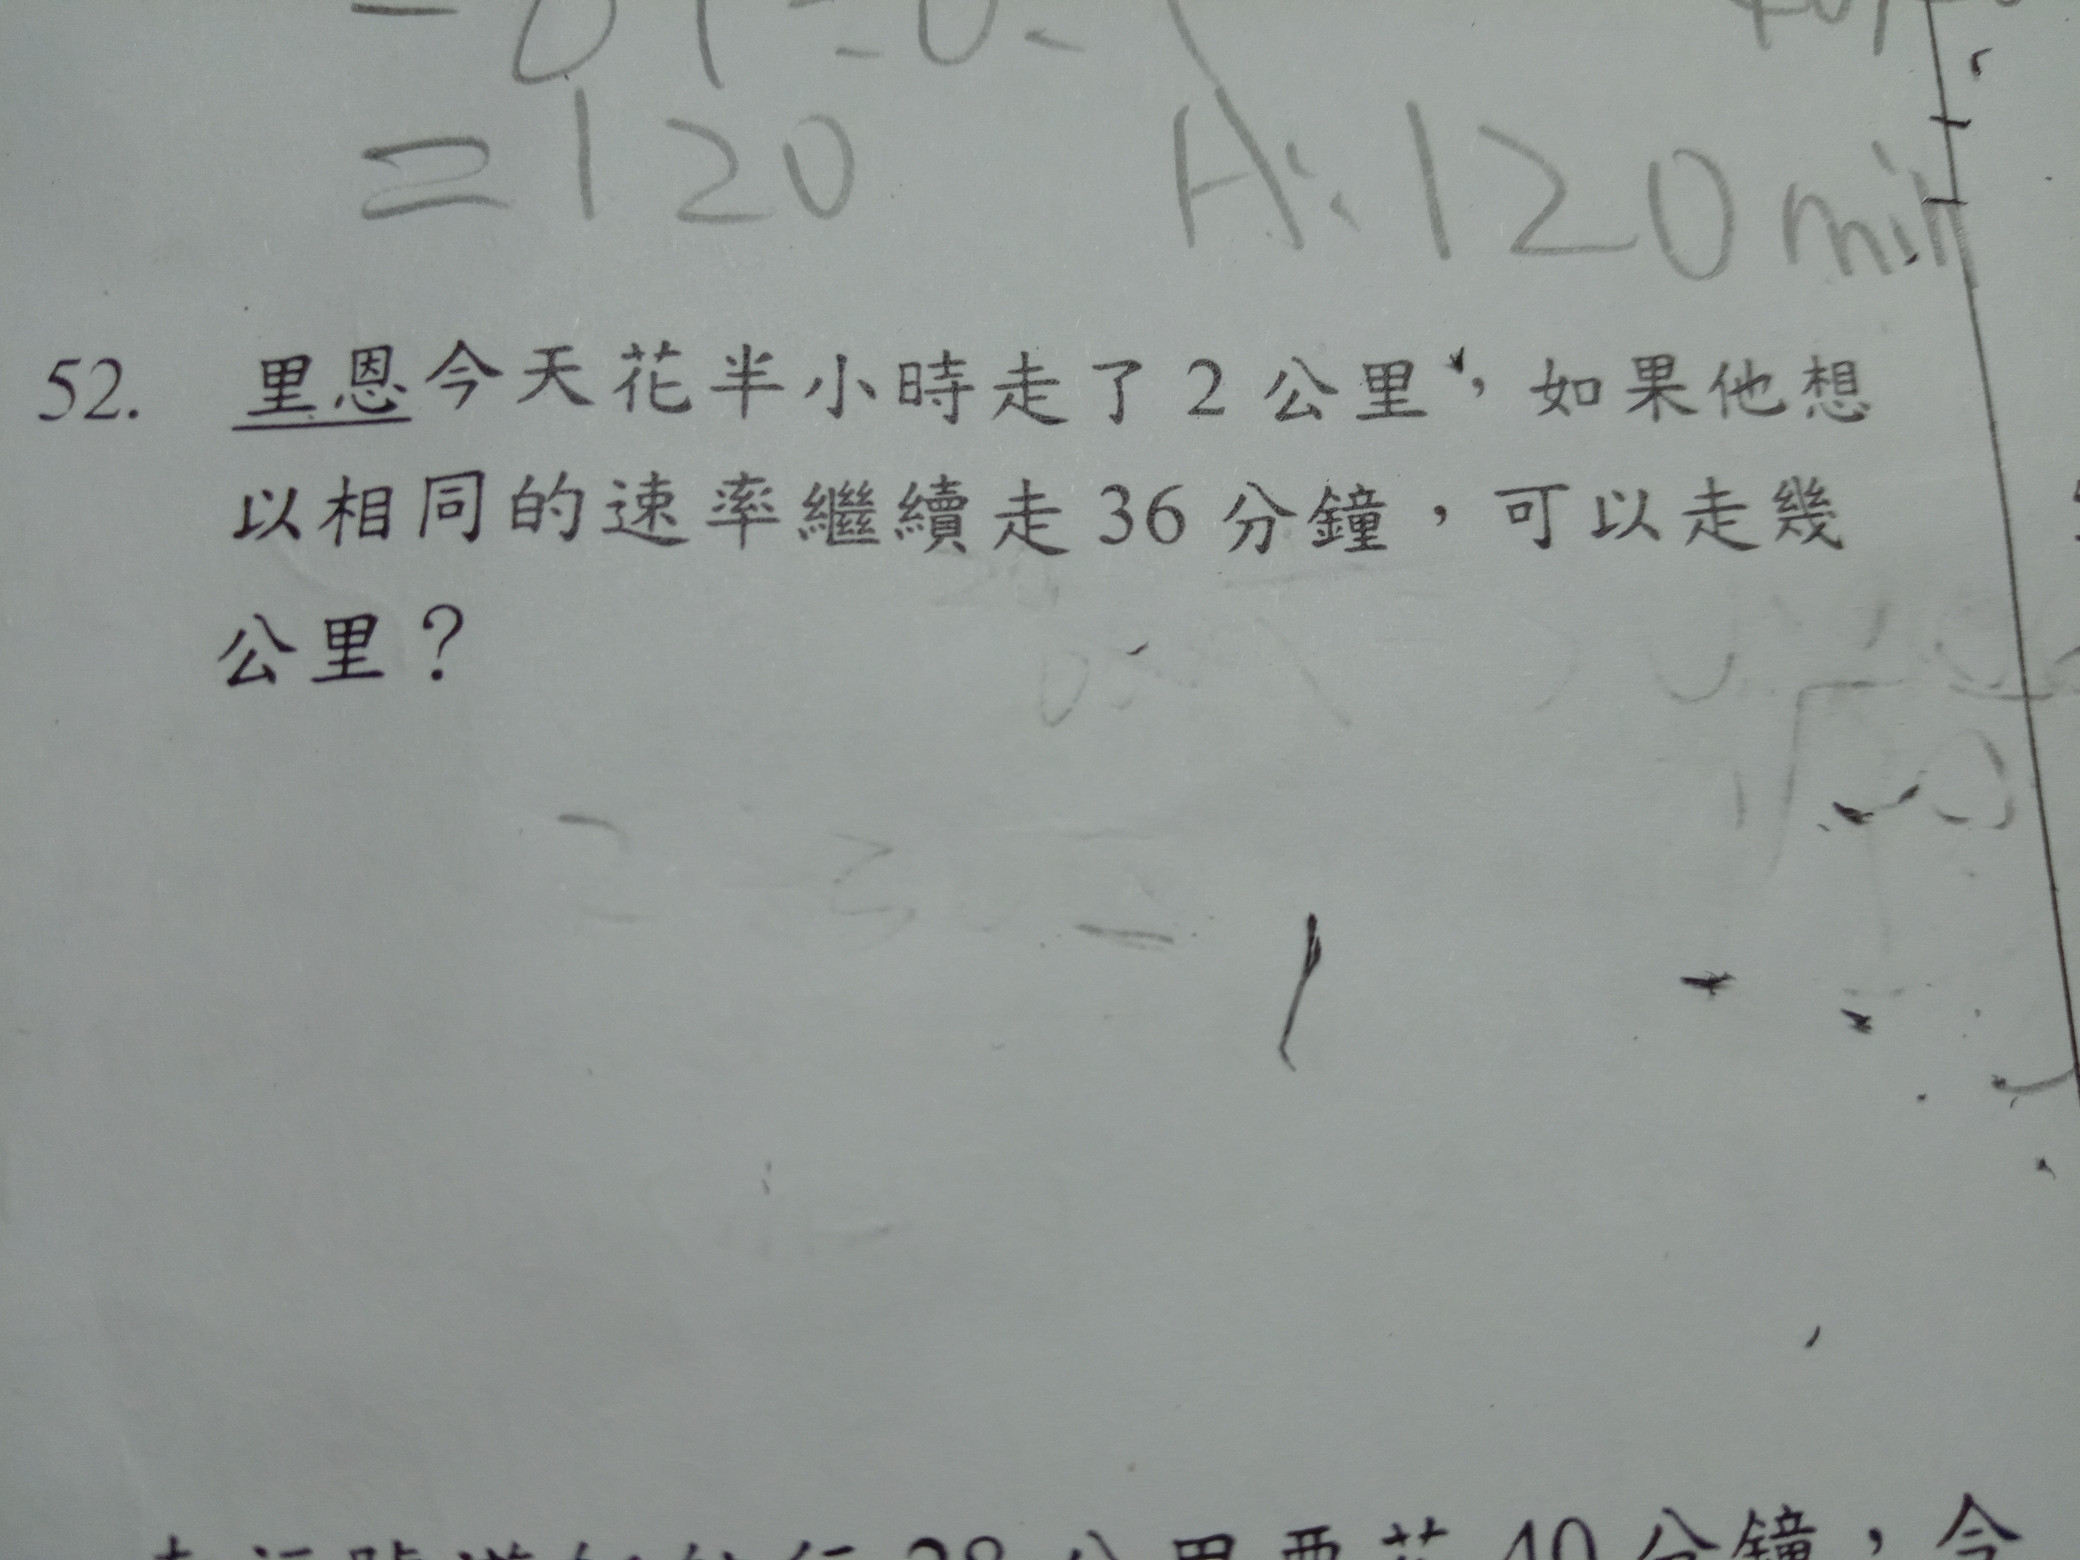 =120 A:120min
52. 里恩今天花半小時走了2公里,如果他想
以相同的速率繼續走36分鐘,可以走幾
公里?
28公里要花40分鐘,今